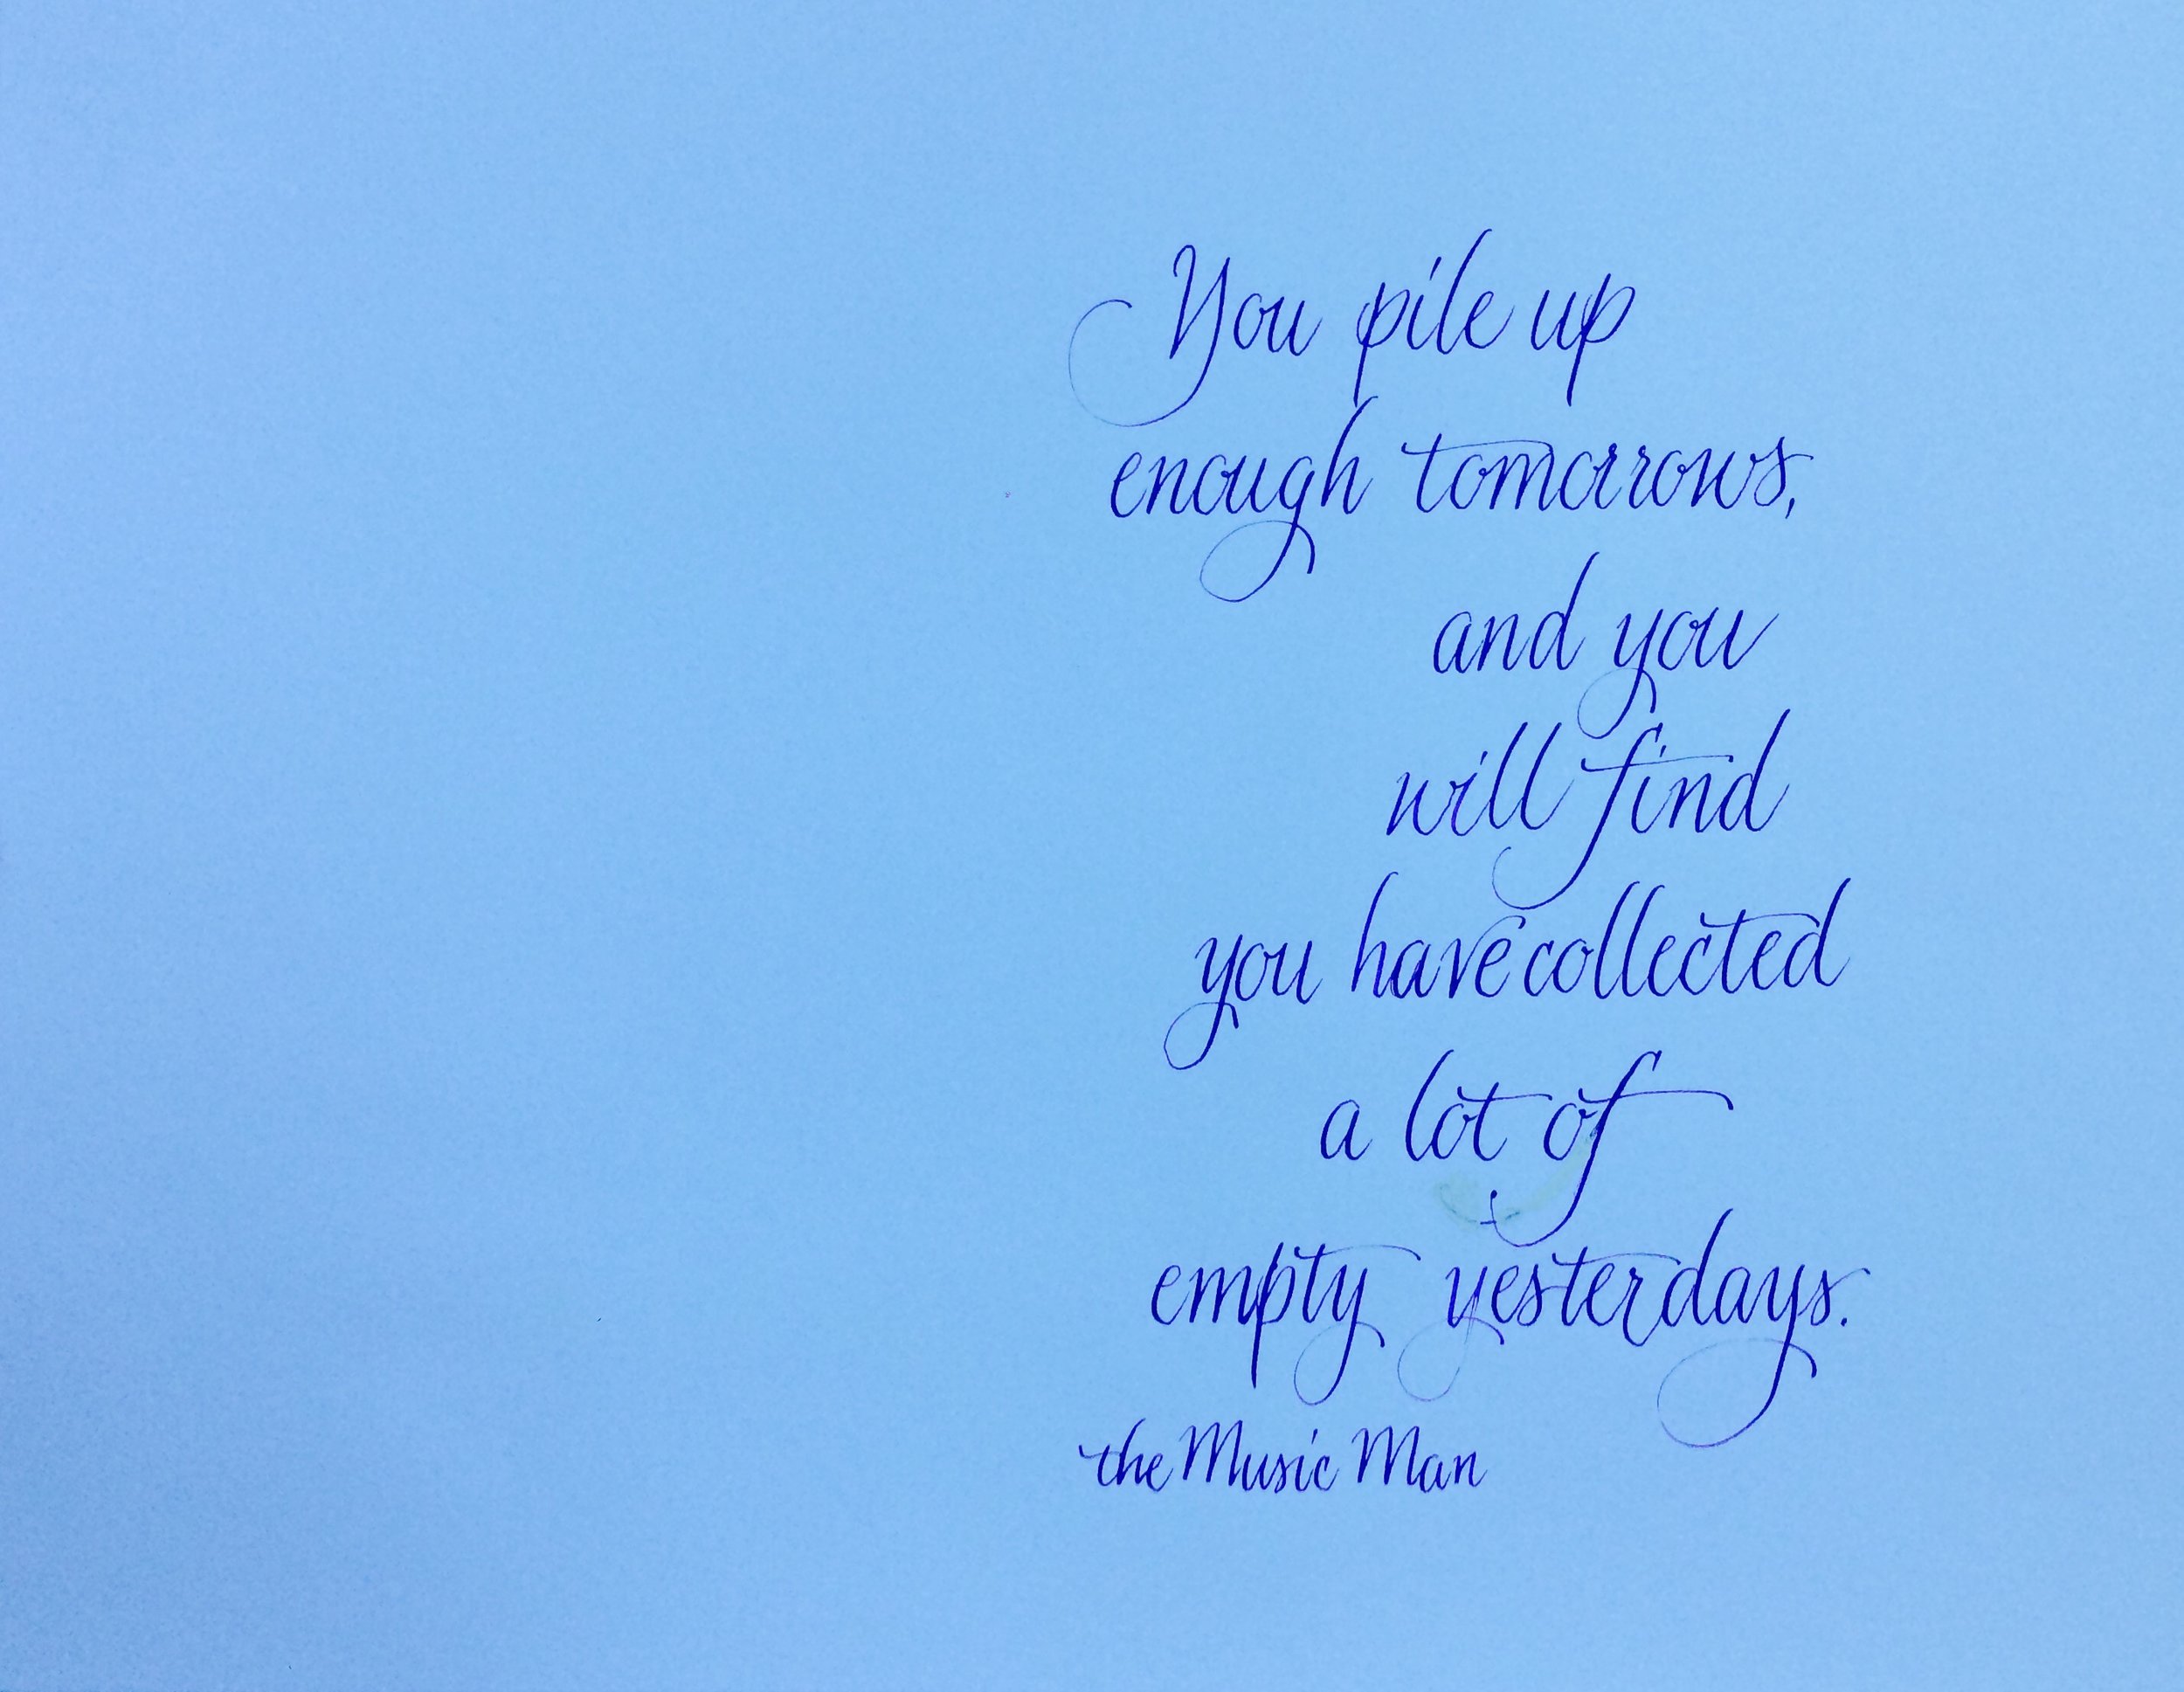 You pile up
enough tomorrows,
and you
will find
you have collected
a lot of
empty yesterdays.
the Music Man